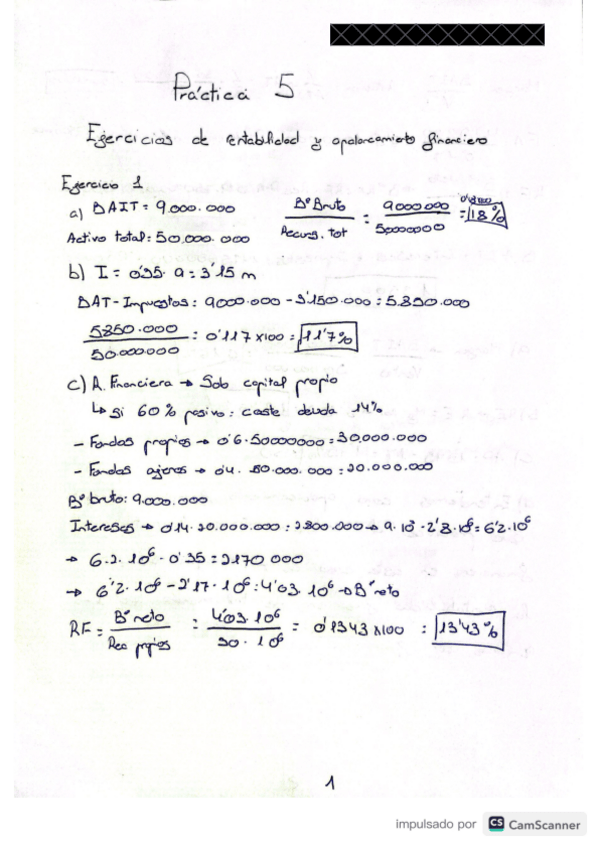 Práctica 5
Ejercicios de rentabilidad y apalancamiento financiero
Ejercicio 1
a) BAIT = 9.000.000
Activo total: 50.000.000
Bº Bruto / Recurs. tot = 9000000 / 50000000 = 0'1800 = 18%
b) I = 0'35 · 9 = 3'15 m
BAT - Impuestos: 9000.000 - 3'150.000 = 5.850.000
5850.000 / 50.000000 = 0'117 x 100 = 11'7%
c) A. Financiera → Solo capital propio
↳ Si 60% pasivo: coste deuda 14%
- Fondos propios → 0'6 · 50000000 = 30.000.000
- Fondos ajenos → 0'4 · 50.000.000 = 20.000.000
Bº bruto: 9.000.000
Intereses → 0'14 · 20.000.000 = 2.800.000 → 9 · 10⁶ - 2'8 · 10⁶ = 6'2 · 10⁶
→ 6.2 · 10⁶ · 0'35 = 2170 000
→ 6'2 · 10⁶ - 2'17 · 10⁶ = 4'03 · 10⁶ → Bº neto
RF = Bº neto / Rec propios = 4'03 · 10⁶ / 30 · 10⁶ = 0'1343 x100 = 13'43%
1
impulsado por CS CamScanner